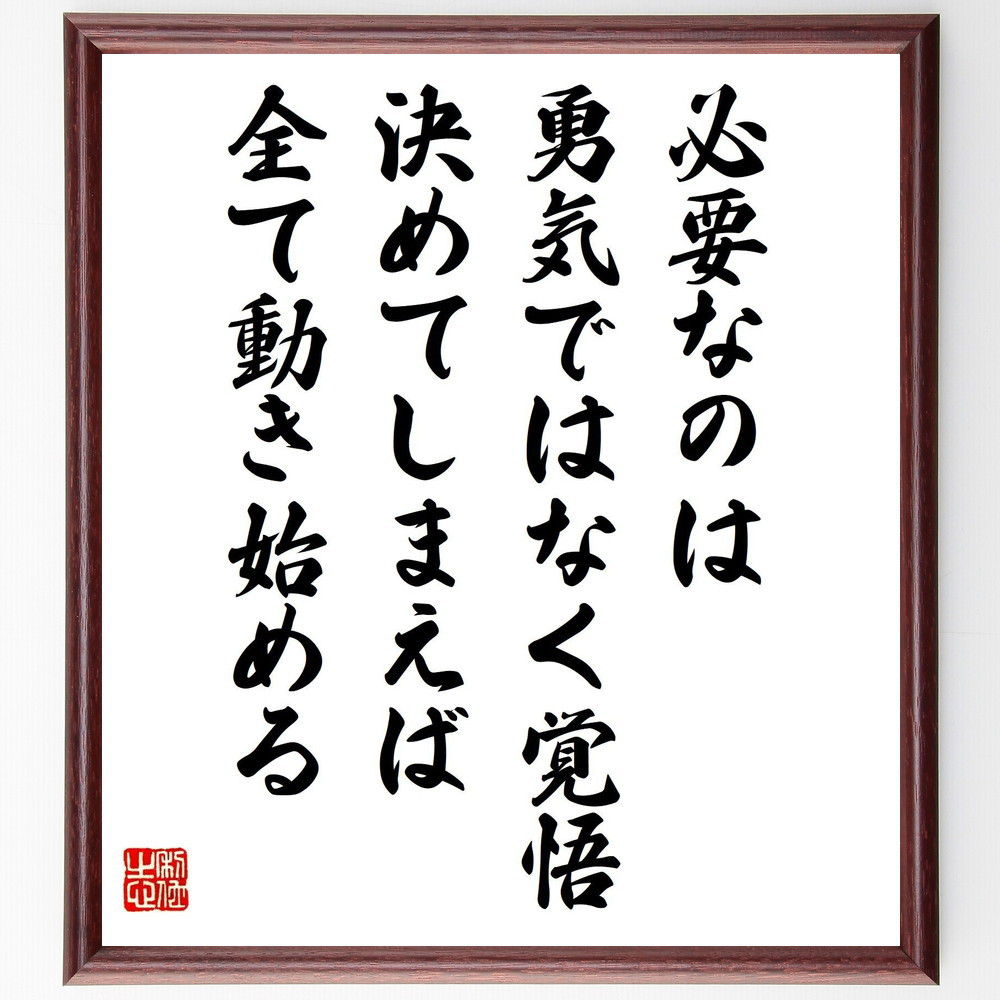 必要なのは
勇気ではなく覚悟
決めてしまえば
全て動き始める